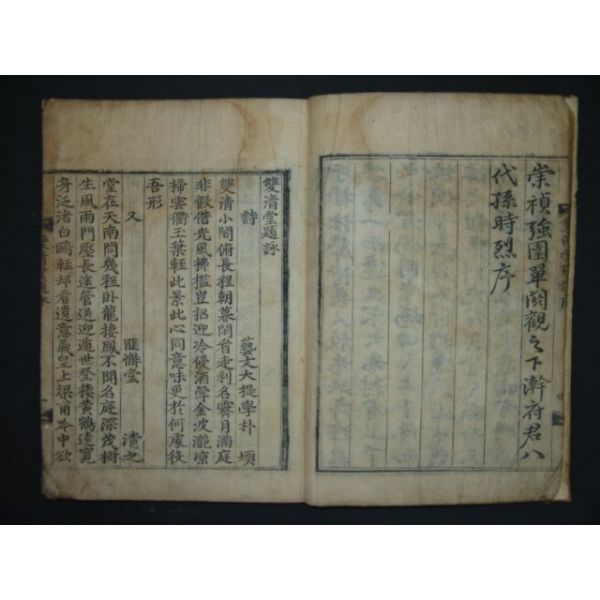 崇禎強圉單閼觀之下澣府君八
代孫時烈序
雙清堂題詠
詩
藝文大提學朴堧
雙清小閣俯長程朝暮閑看走利名霽月滿庭
非假借光風拂檻豈招迎冷侵酒斝金波灔凉
掃雲衢玉葉輕此景此心同意味更於何處役
吾形
又
匪懈堂
清之
堂在天南問幾程卧龍棲鳳不聞名庭深茂樹
生風雨門壓長途管送迎遁世登樓黃鶴遠寬
身泛渚白鷗輕却看遺意羲皇上梁甫吟中欲